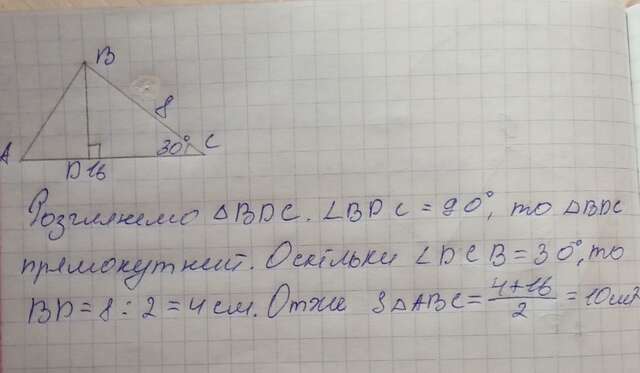 B
8
A
30°
C
D 16
Розглянемо △BDC. ∠BDC = 90°, то △BDC
прямокутний. Оскільки ∠DCB = 30°, то
BD = 8 : 2 = 4 см. Отже S△ABC = (4+16)/2 = 10 см²